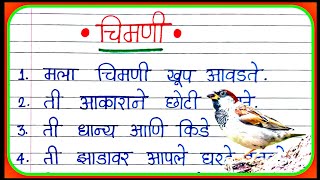 चिमणी
1. मला चिमणी खूप आवडते.
2. ती आकाराने छोटी
3. ती धान्य आणि किडे
4. ती झाडावर आपले घरटे